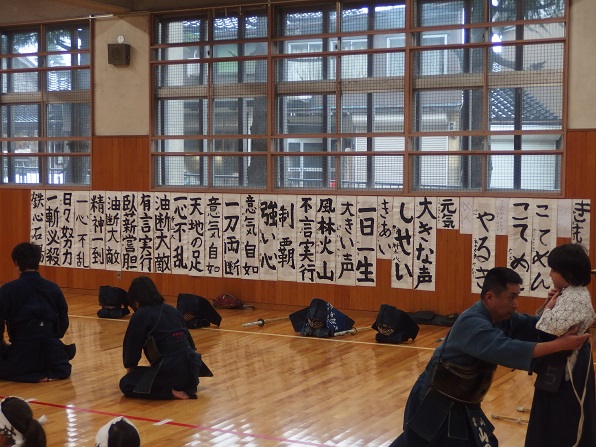 こてめん
こてめ
やるき
元気
大きな声
しせい
きあい
一日一生
大きい声
風林火山
不言実行
制覇
強い心
意気自如
一刀両断
意気自如
天地の足
一心不乱
油断大敵
有言実行
臥薪嘗胆
油断大敵
精神一到
一心不乱
日々努力
一斬必殺
鉄心石